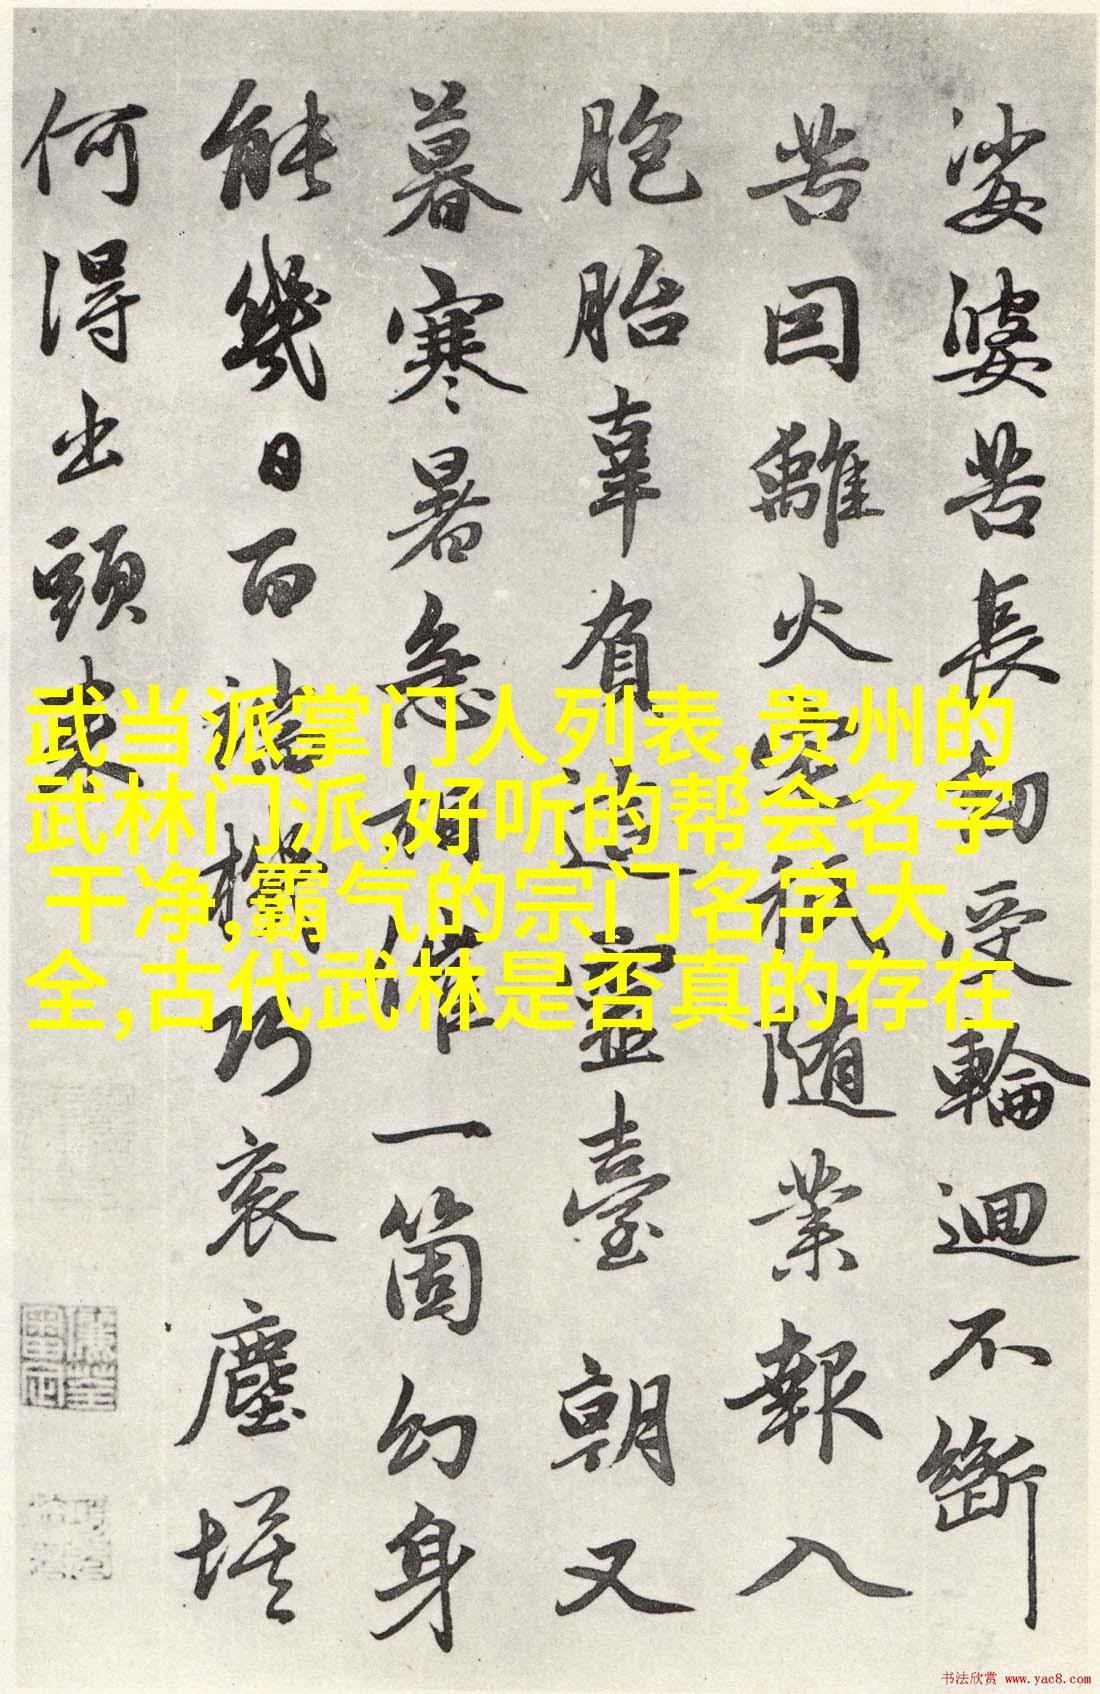 娑婆苦長劫受輪迴不斷
苦因離火宅秪随業報入
胞胎辜負靈臺朝又
暮寒暑急相催一箇幻身
能幾日百機巧衮塵埃
何得出頭来
武当派掌门人列表,贵州的
武林门派,好听的帮会名字
干净,霸气的宗门名字大
全,古代武林是否真的存在
书法欣赏 www.yac8.com